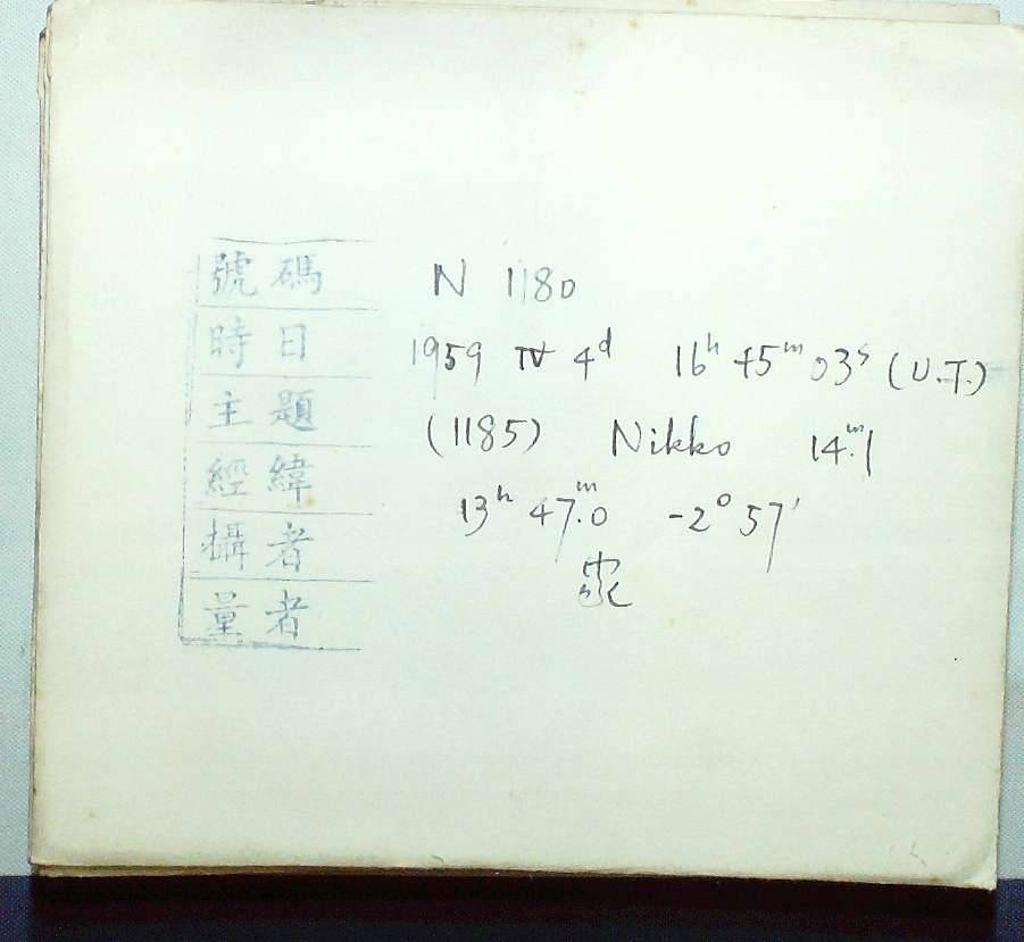 號碼 N 1180
時日 1959 IV 4d 16h 45m 03s (U.T.)
主題 (1185) Nikko 14m.1
經緯 13h 47m.0 -2° 57'
攝者
量者